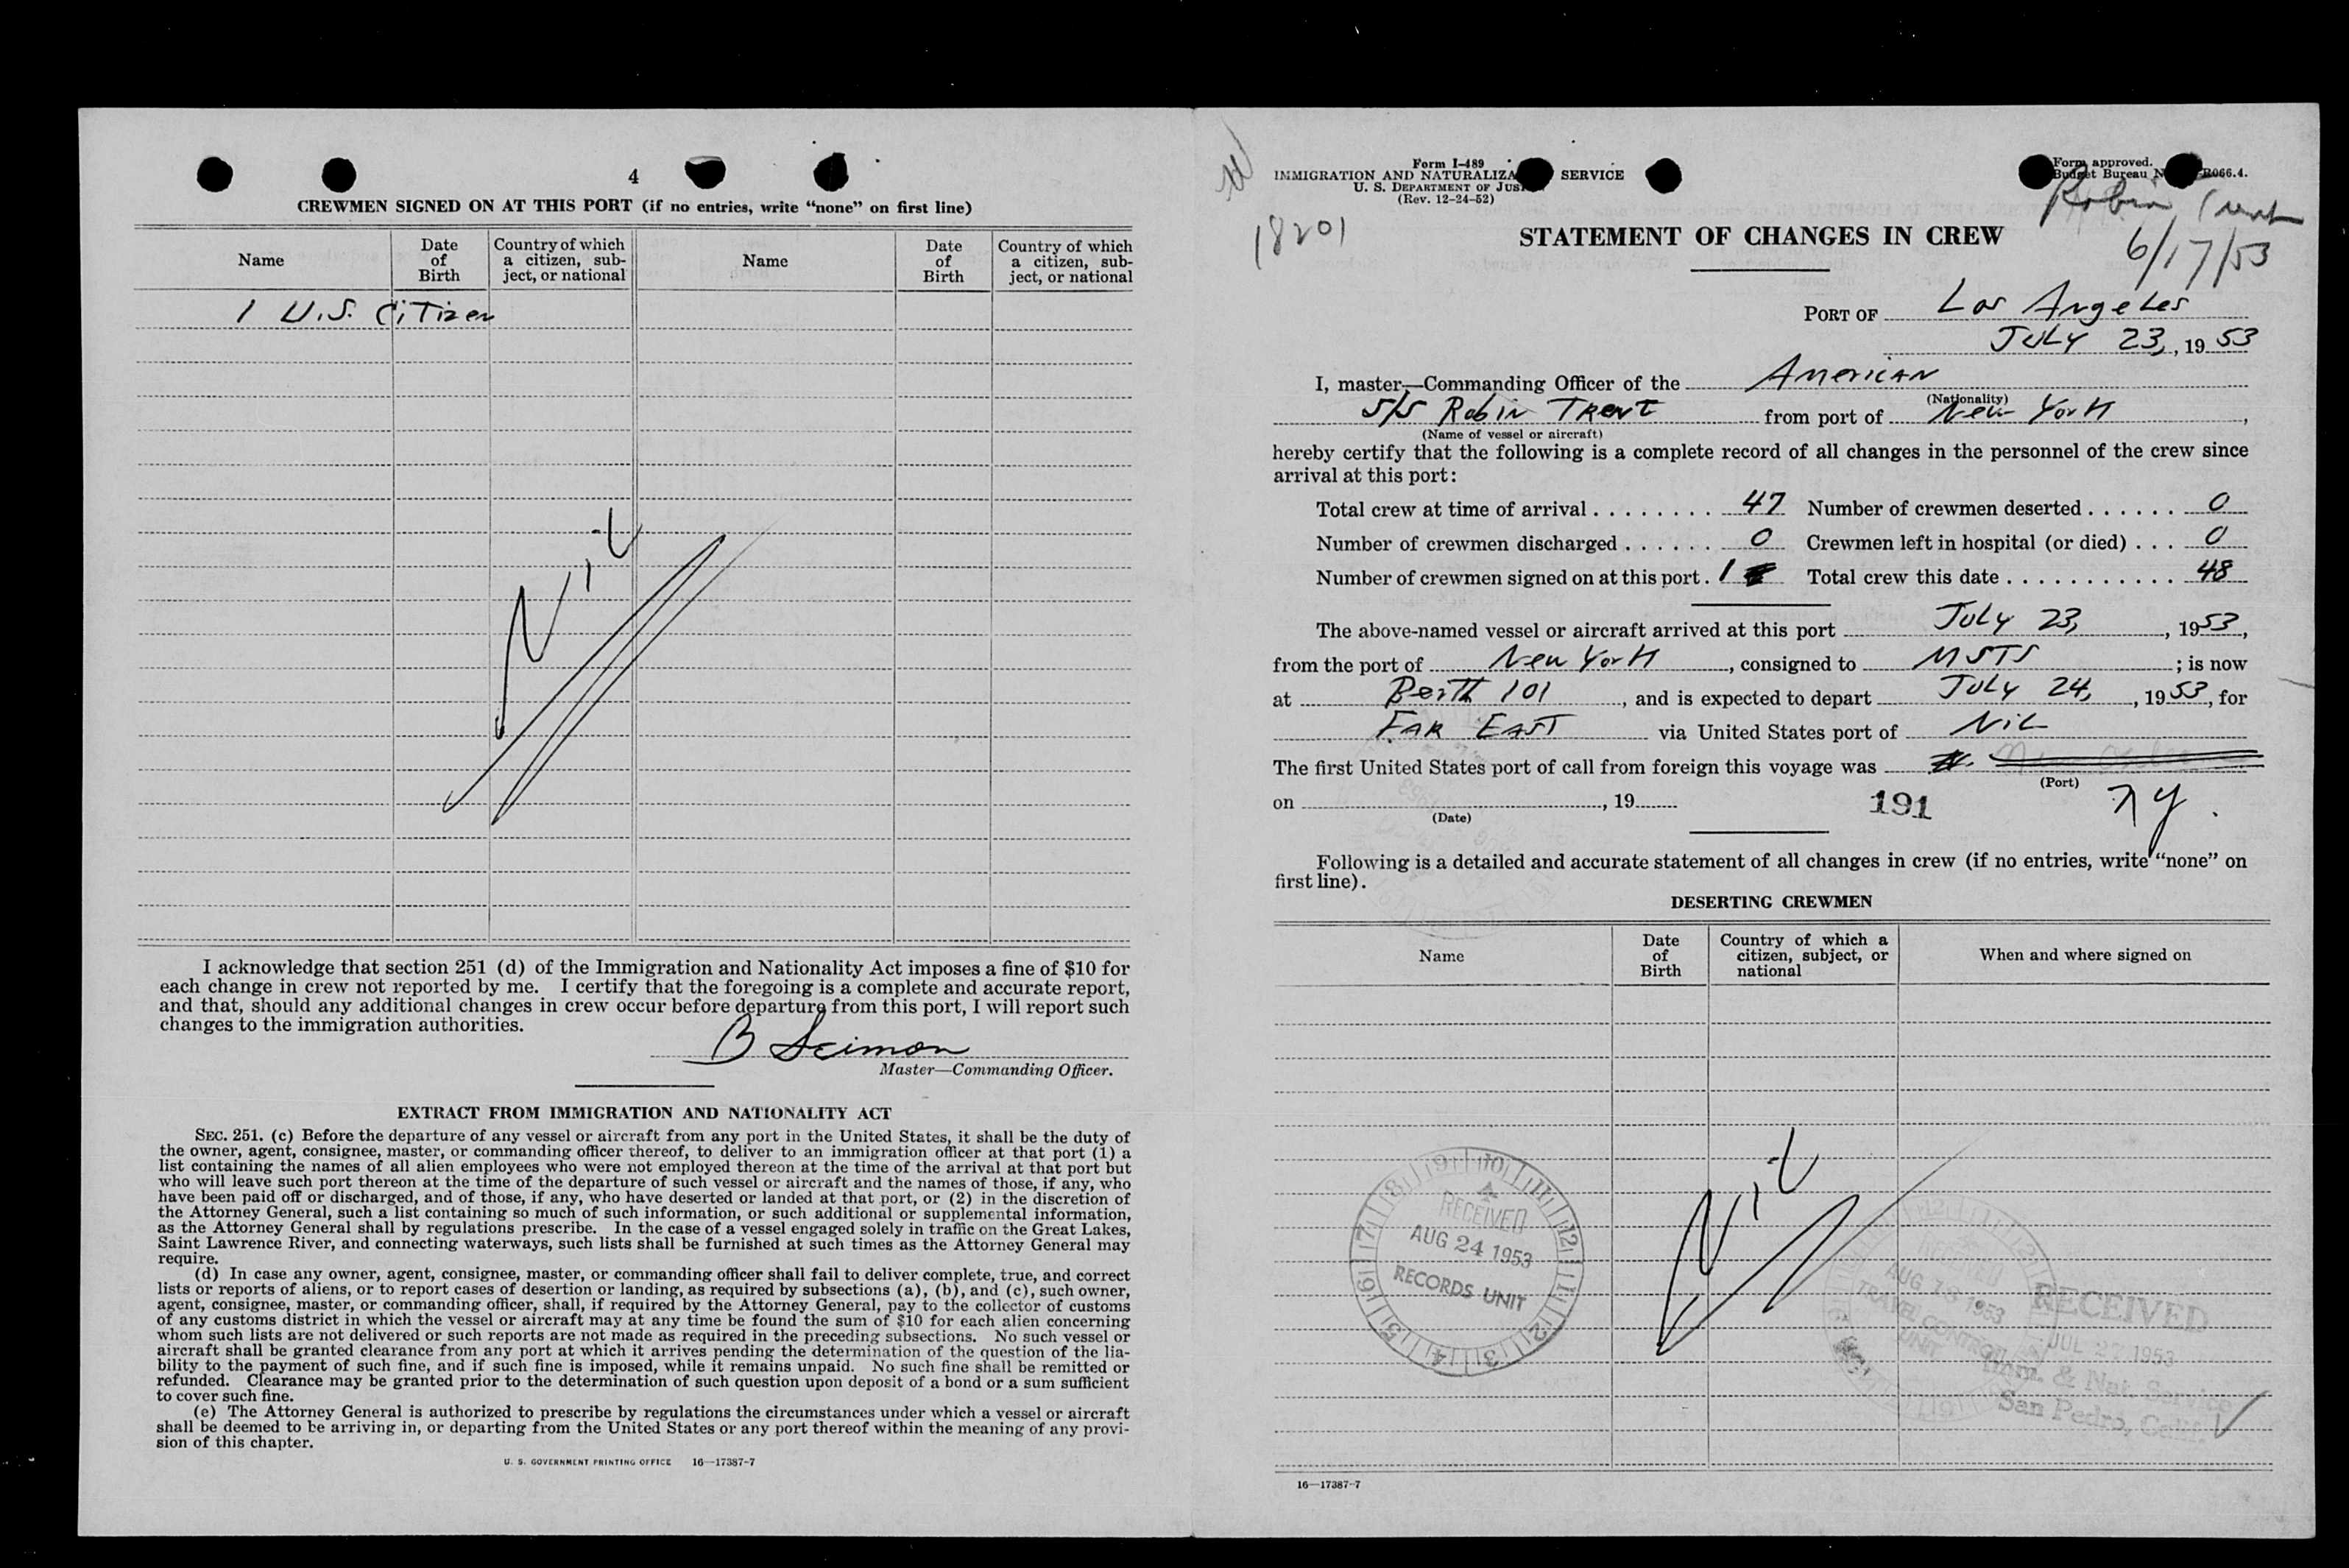 4
CREWMEN SIGNED ON AT THIS PORT (if no entries, write "none" on first line)
Name
Date of Birth
Country of which a citizen, sub-ject, or national
Name
Date of Birth
Country of which a citizen, sub-ject, or national
1 U.S. Citizen
Nil
I acknowledge that section 251 (d) of the Immigration and Nationality Act imposes a fine of $10 for
each change in crew not reported by me. I certify that the foregoing is a complete and accurate report,
and that, should any additional changes in crew occur before departure from this port, I will report such
changes to the immigration authorities.
B Seimon
Master—Commanding Officer.
EXTRACT FROM IMMIGRATION AND NATIONALITY ACT
SEC. 251. (c) Before the departure of any vessel or aircraft from any port in the United States, it shall be the duty of
the owner, agent, consignee, master, or commanding officer thereof, to deliver to an immigration officer at that port (1) a
list containing the names of all alien employees who were not employed thereon at the time of the arrival at that port but
who will leave such port thereon at the time of the departure of such vessel or aircraft and the names of those, if any, who
have been paid off or discharged, and of those, if any, who have deserted or landed at that port, or (2) in the discretion of
the Attorney General, such a list containing so much of such information, or such additional or supplemental information,
as the Attorney General shall by regulations prescribe. In the case of a vessel engaged solely in traffic on the Great Lakes,
Saint Lawrence River, and connecting waterways, such lists shall be furnished at such times as the Attorney General may
require.
(d) In case any owner, agent, consignee, master, or commanding officer shall fail to deliver complete, true, and correct
lists or reports of aliens, or to report cases of desertion or landing, as required by subsections (a), (b), and (c), such owner,
agent, consignee, master, or commanding officer, shall, if required by the Attorney General, pay to the collector of customs
of any customs district in which the vessel or aircraft may at any time be found the sum of $10 for each alien concerning
whom such lists are not delivered or such reports are not made as required in the preceding subsections. No such vessel or
aircraft shall be granted clearance from any port at which it arrives pending the determination of the question of the lia-
bility to the payment of such fine, and if such fine is imposed, while it remains unpaid. No such fine shall be remitted or
refunded. Clearance may be granted prior to the determination of such question upon deposit of a bond or a sum sufficient
to cover such fine.
(e) The Attorney General is authorized to prescribe by regulations the circumstances under which a vessel or aircraft
shall be deemed to be arriving in, or departing from the United States or any port thereof within the meaning of any provi-
sion of this chapter.
U. S. GOVERNMENT PRINTING OFFICE 16—17387-7
Form I-489
IMMIGRATION AND NATURALIZA SERVICE
U. S. DEPARTMENT OF JUS
(Rev. 12-24-52)
Form approved.
Budget Bureau N R066.4.
18201
Robin Trent
6/17/53
STATEMENT OF CHANGES IN CREW
PORT OF Los Angeles
July 23, , 19 53
I, master—Commanding Officer of the American
(Nationality)
S/S Robin Trent from port of New York ,
(Name of vessel or aircraft)
hereby certify that the following is a complete record of all changes in the personnel of the crew since
arrival at this port:
Total crew at time of arrival 47 Number of crewmen deserted 0
Number of crewmen discharged 0 Crewmen left in hospital (or died) 0
Number of crewmen signed on at this port 1 Total crew this date 48
The above-named vessel or aircraft arrived at this port July 23, , 1953,
from the port of New York , consigned to MSTS ; is now
at Berth 101 , and is expected to depart July 24, , 1953, for
FAR EAST via United States port of NIL
The first United States port of call from foreign this voyage was
(Port)
on , 19
(Date)
191
NY.
Following is a detailed and accurate statement of all changes in crew (if no entries, write "none" on
first line).
DESERTING CREWMEN
Name
Date of Birth
Country of which a citizen, subject, or national
When and where signed on
Nil
RECEIVED
AUG 24 1953
RECORDS UNIT
AUG 18 1953
TRAVEL CONTROL
UNIT
RECEIVED
JUL 27 1953
Imm. & Nat. Service
San Pedro, Calif.
16—17387-7